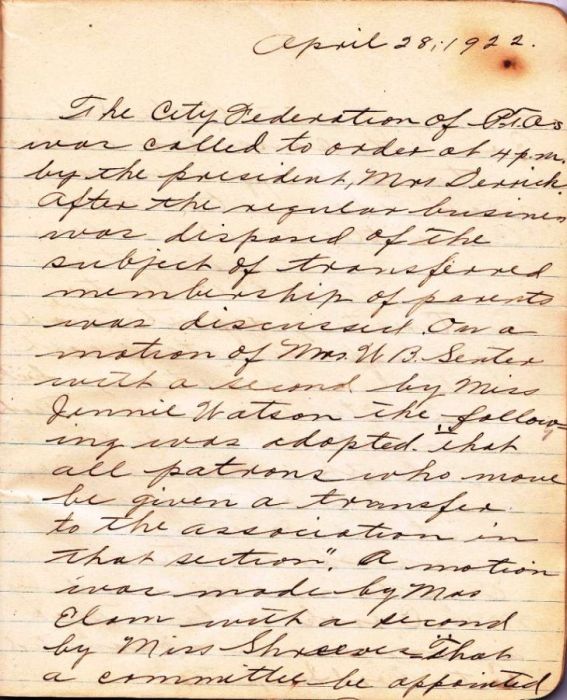 April 28, 1922.
The City Federation of P.T.A's
was called to order at 4 p.m.
by the president, Mrs Derrick.
After the regular busines
was disposed of the
subject of transferred
membership of parents
was discussed. On a
motion of Mrs. W B. Senter
with a second by Miss
Jennie Watson the follow=
ing was adopted. "that
all patrons who move
be given a transfer
to the association in
that section". A motion
was made by Mrs
Elam with a second
by Miss Shreeves "That
a committee be appointed